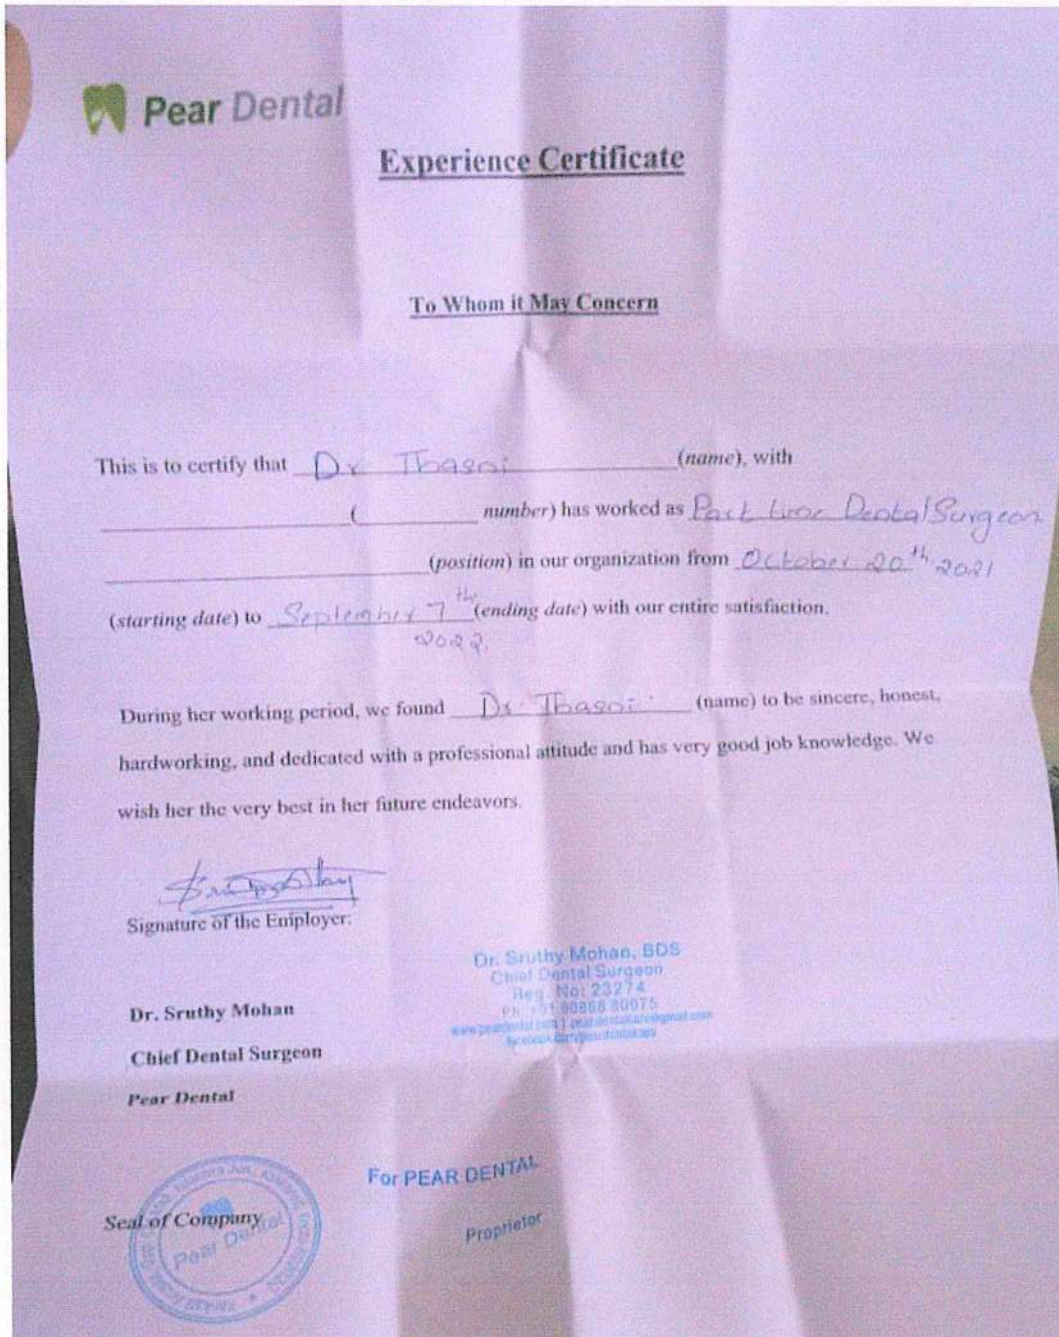 Pear Dental
Experience Certificate
To Whom it May Concern
This is to certify that Dr Thasni (name), with
( number) has worked as Part time Dental Surgeon
(position) in our organization from October 20th 2021
(starting date) to September 7th (ending date) with our entire satisfaction.
2022
During her working period, we found Dr Thasni (name) to be sincere, honest,
hardworking, and dedicated with a professional attitude and has very good job knowledge. We
wish her the very best in her future endeavors.
Signature of the Employer:
Dr. Sruthy Mohan, BDS
Chief Dental Surgeon
Reg. No: 23274
Dr. Sruthy Mohan
Chief Dental Surgeon
Pear Dental
For PEAR DENTAL
Proprietor
Seal of Company
Pear Dental